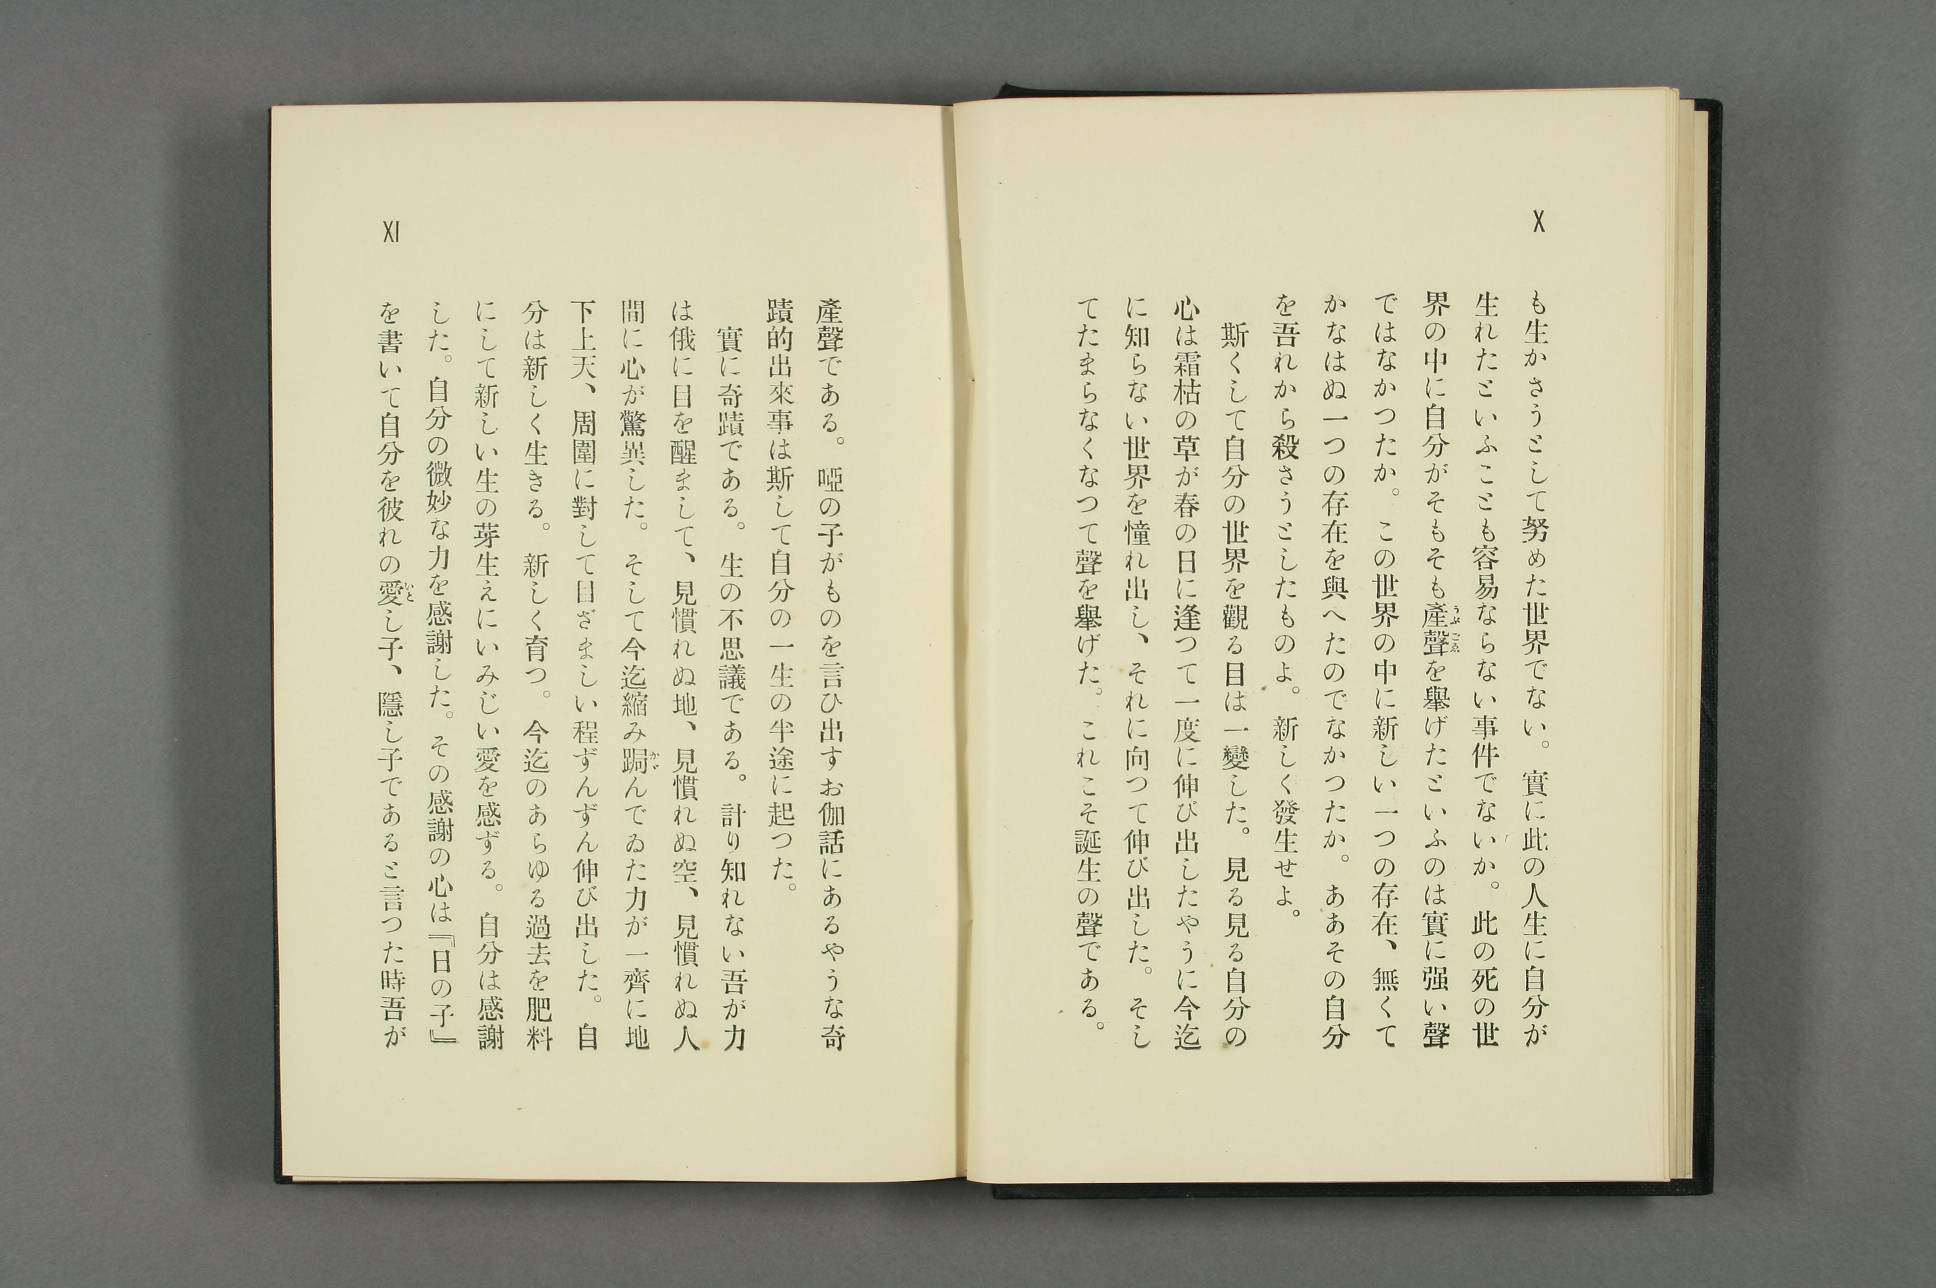 X
も生かさうとして努めた世界でない。實に此の人生に自分が
生れたといふことも容易ならない事件でないか。此の死の世
界の中に自分がそもそも產聲を擧げたといふのは實に强い聲
うぶごゑ
ではなかつたか。この世界の中に新しい一つの存在、無くて
かなはぬ一つの存在を與へたのでなかつたか。ああその自分
を吾れから殺さうとしたものよ。新しく發生せよ。
斯くして自分の世界を觀る目は一變した。見る見る自分の
心は霜枯の草が春の日に逢つて一度に伸び出したやうに今迄
に知らない世界を憧れ出し、それに向つて伸び出した。そし
てたまらなくなつて聲を擧げた。これこそ誕生の聲である。
XI
產聲である。啞の子がものを言ひ出すお伽話にあるやうな奇
蹟的出來事は斯して自分の一生の半途に起つた。
實に奇蹟である。生の不思議である。計り知れない吾が力
は俄に目を醒まして、見慣れぬ地、見慣れぬ空、見慣れぬ人
間に心が驚異した。そして今迄縮み跼んでゐた力が一齊に地
かゞ
下上天、周圍に對して目ざましい程ずんずん伸び出した。自
分は新しく生きる。新しく育つ。今迄のあらゆる過去を肥料
にして新しい生の芽生えにいみじい愛を感ずる。自分は感謝
した。自分の微妙な力を感謝した。その感謝の心は『日の子』
を書いて自分を彼れの愛し子、隱し子であると言つた時吾が
いと